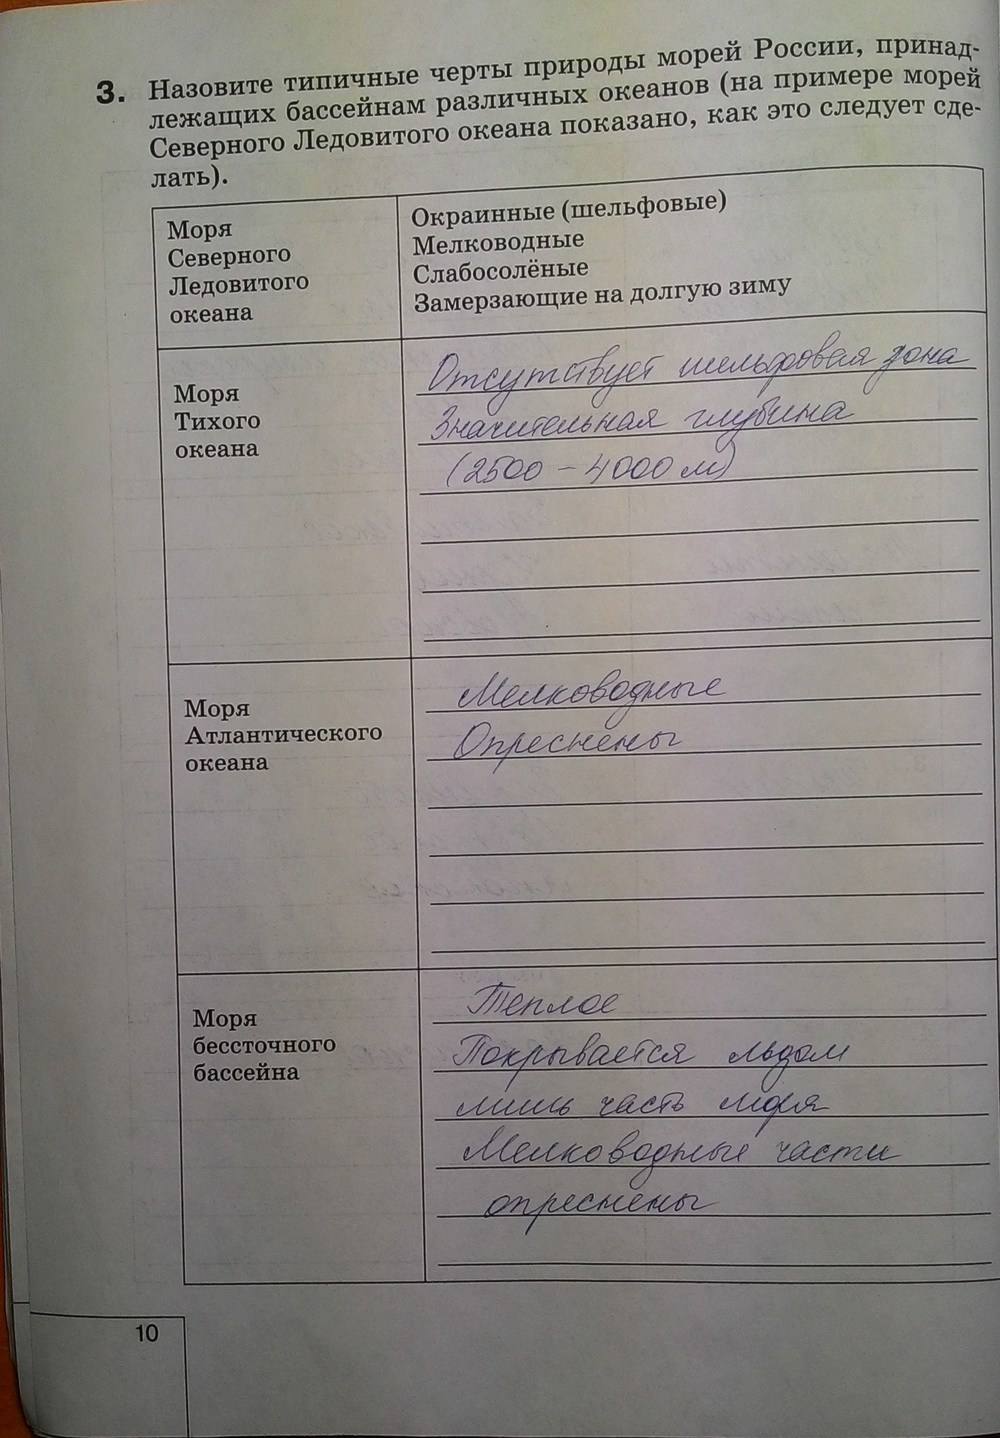 3. Назовите типичные черты природы морей России, принад-
лежащих бассейнам различных океанов (на примере морей
Северного Ледовитого океана показано, как это следует сде-
лать).
Моря
Северного
Ледовитого
океана
Окраинные (шельфовые)
Мелководные
Слабосолёные
Замерзающие на долгую зиму
Моря
Тихого
океана
Отсутствует шельфовая зона
Значительная глубина
(2500 – 4000 м)
Моря
Атлантического
океана
Мелководные
Опреснены
Моря
бессточного
бассейна
Теплое
Покрывается льдом
лишь часть моря
Мелководные части
опреснены
10